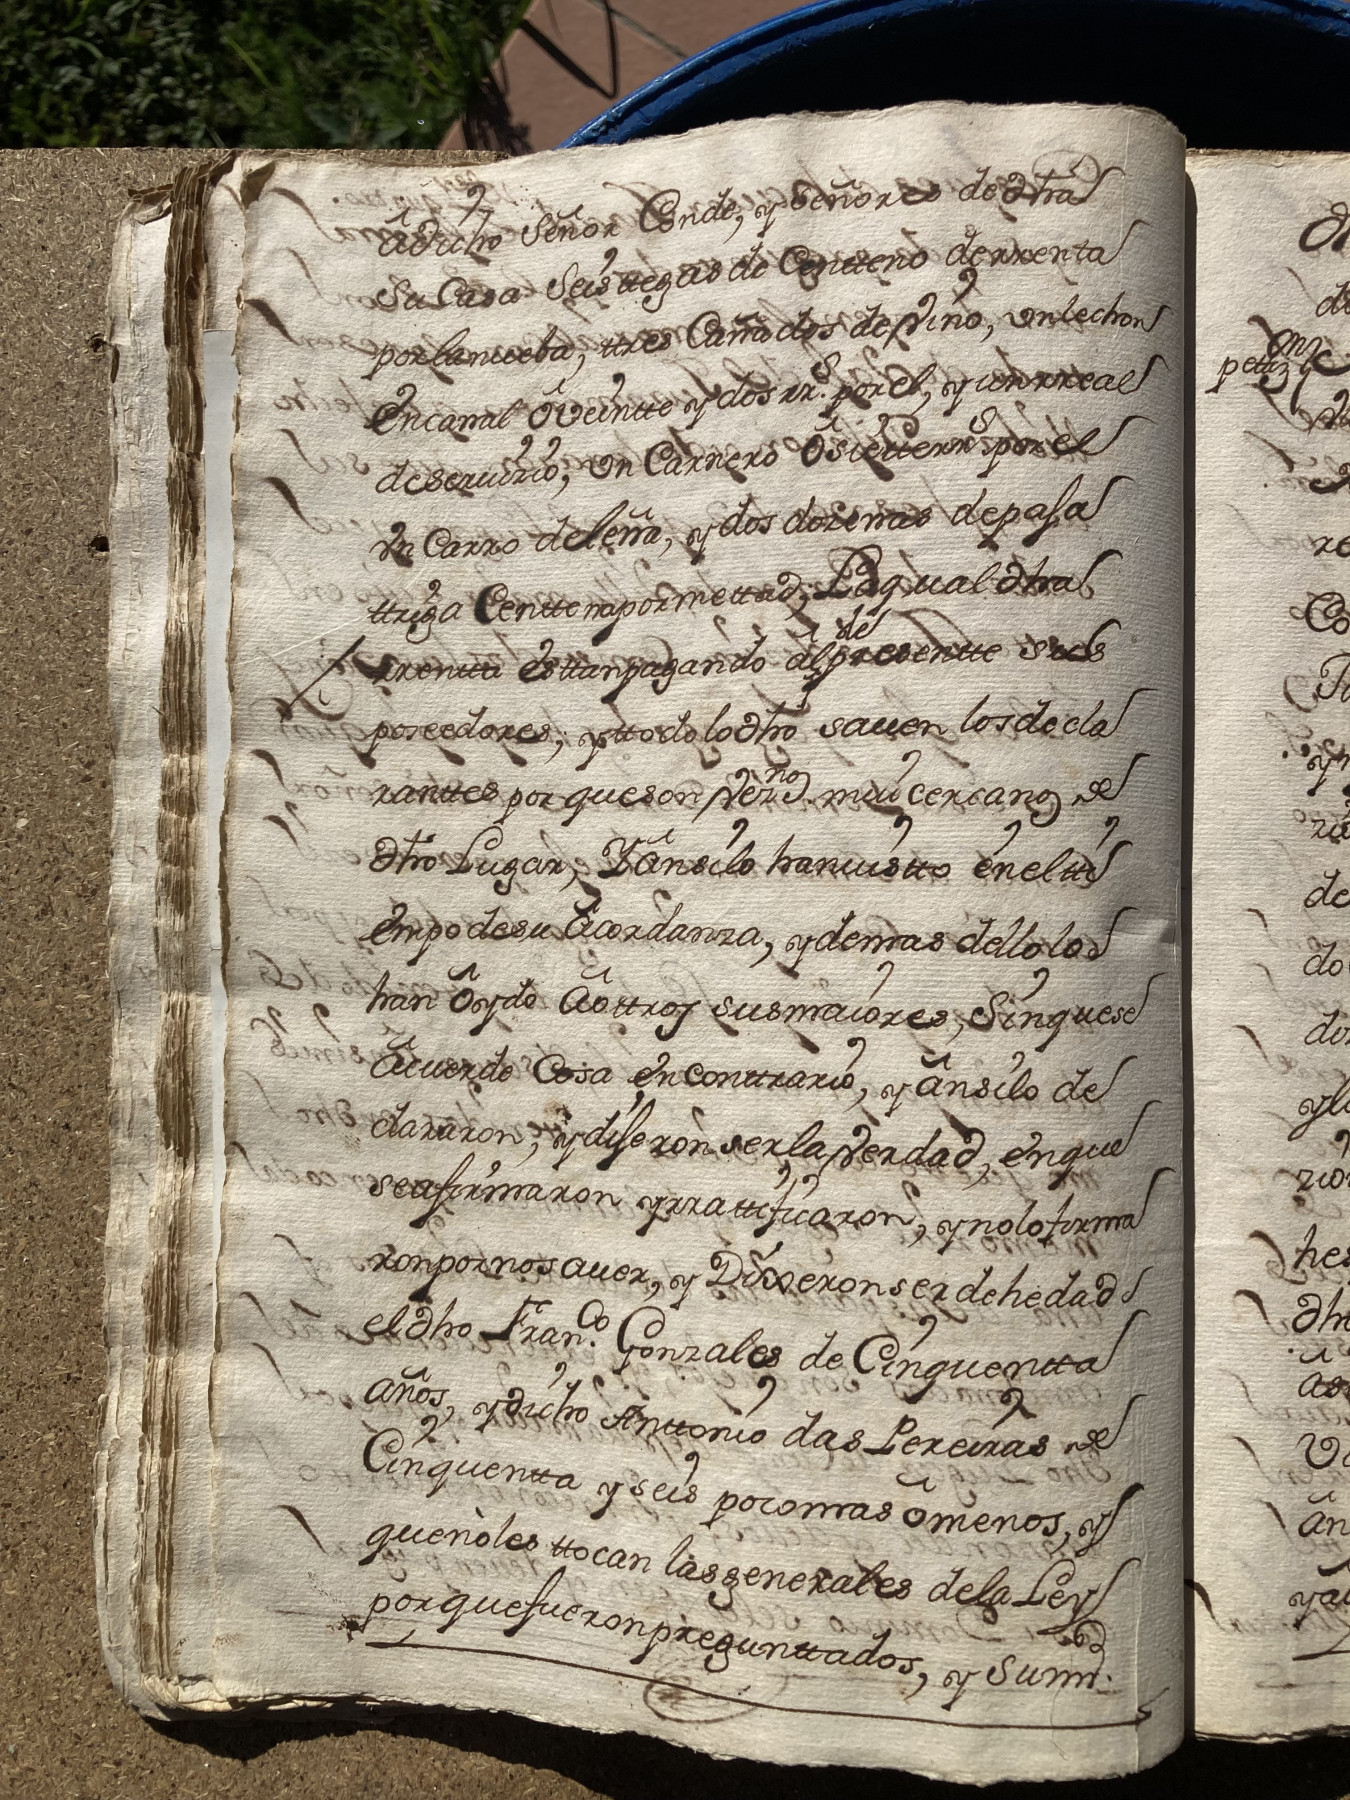 â dicho Señor Conde, y Señores de dha
Su Casa Seis ttegas de Centteno de rrenta
por la nueba, ttres Cañados de vino, un lechon
en canal ô veintte y dos rrs. por el, y un rreal
de seruizio, un Carnero ô siette rrs por el
vn Carro de leña, y dos dozenas de pasa
ttriga Centtena por mettad; La qual dha
rrentta esttan pagando al presentte de sus
poseedores; y ttodo lo dho sauen los decla
ranttes por que son Vezno. mui cercanos de
dho Lugar, Y ânsilo han uistto en el tti
empo de su âcordanza, y demas dello lo
han ôydo â ôttros sus maiores, Sin que se
âcuerde Cosa en conttrario, y ânsilo de
clararon, y dijeron ser la Verdad, en que
se afirmaron y rrattificaron, y no lo firma
ron por no sauer, y Dixeron ser de hedad
el dho Franco. Gonzales de Cinquentta
años, y dicho Anttonio das Pereiras de
Cinquentta y seis poco mas ô menos, y
que no les ttocan las generales de la Ley
por que fueron preguntados, y Su md.
On
de
pettiz
re
Co
de
do
hes
dho